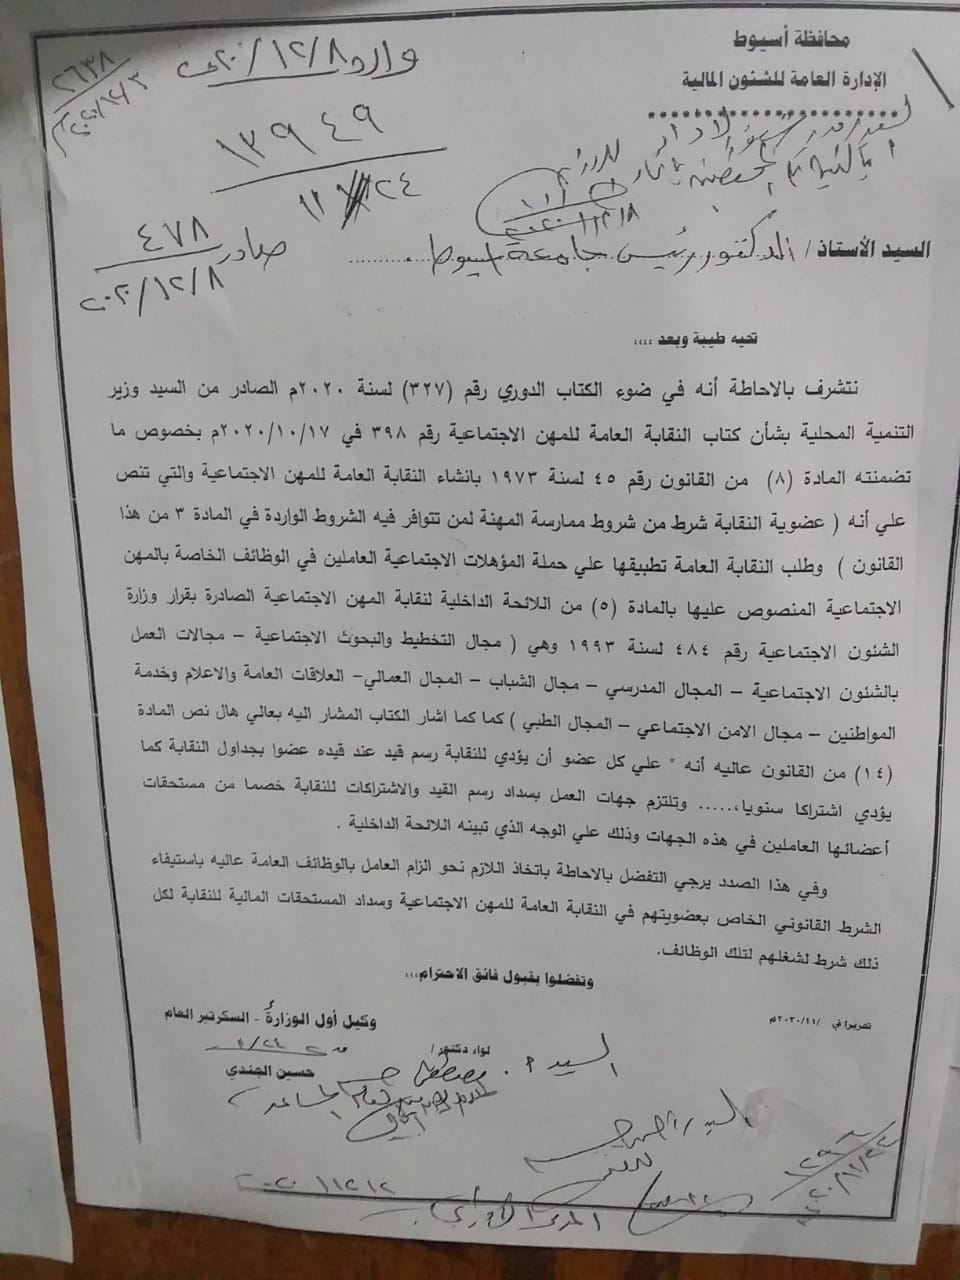 محافظة أسيوط
الإدارة العامة للشئون المالية
وارد ٢٠/١٢/٨
٢٦٣٨
١٣٩٤٩
١١/٢٤
صادر ٤٧٨
٢٠٢٠/١٢/٨
السيد الأستاذ / الدكتور رئيس جامعة اسيوط
تحيه طيبة وبعد ،،،،
نتشرف بالاحاطة أنه في ضوء الكتاب الدوري رقم (٣٢٧) لسنة ٢٠٢٠م الصادر من السيد وزير
التنمية المحلية بشأن كتاب النقابة العامة للمهن الاجتماعية رقم ٣٩٨ في ٢٠٢٠/١٠/١٧م بخصوص ما
تضمنته المادة (٨) من القانون رقم ٤٥ لسنة ١٩٧٣ بانشاء النقابة العامة للمهن الاجتماعية والتي تنص
علي أنه ( عضوية النقابة شرط من شروط ممارسة المهنة لمن تتوافر فيه الشروط الواردة في المادة ٣ من هذا
القانون ) وطلب النقابة العامة تطبيقها علي حملة المؤهلات الاجتماعية العاملين في الوظائف الخاصة بالمهن
الاجتماعية المنصوص عليها بالمادة (٥) من اللائحة الداخلية لنقابة المهن الاجتماعية الصادرة بقرار وزارة
الشئون الاجتماعية رقم ٤٨٤ لسنة ١٩٩٣ وهي ( مجال التخطيط والبحوث الاجتماعية – مجالات العمل
بالشئون الاجتماعية – المجال المدرسي – مجال الشباب – المجال العمالي- العلاقات العامة والاعلام وخدمة
المواطنين – مجال الامن الاجتماعي – المجال الطبي ) كما كما اشار الكتاب المشار اليه بعالي هال نص المادة
(١٤) من القانون عاليه أنه " علي كل عضو أن يؤدي للنقابة رسم قيد عند قيده عضوا بجداول النقابة كما
يؤدي اشتراكا سنويا،..... وتلتزم جهات العمل بسداد رسم القيد والاشتراكات للنقابة خصما من مستحقات
أعضائها العاملين في هذه الجهات وذلك علي الوجه الذي تبينه اللائحة الداخلية .
وفي هذا الصدد يرجي التفضل بالاحاطة باتخاذ اللازم نحو الزام العامل بالوظائف العامة عاليه باستيفاء
الشرط القانوني الخاص بعضويتهم في النقابة العامة للمهن الاجتماعية وسداد المستحقات المالية للنقابة لكل
ذلك شرط لشغلهم لتلك الوظائف.
وتفضلوا بقبول فائق الاحترام،،،
تحريرا في /٢٠٢٠/١١م
وكيل أول الوزارة - السكرتير العام
لواء دكتور/
حسين الجندي
السيد
٢٠٢٠/١٢/١٢